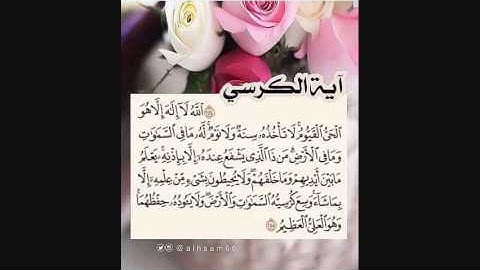 آية الكرسي
ٱللَّهُ لَآ إِلَٰهَ إِلَّا هُوَ
ٱلْحَىُّ ٱلْقَيُّومُ لَا تَأْخُذُهُۥ سِنَةٌ وَلَا نَوْمٌ لَّهُۥ مَا فِى ٱلسَّمَٰوَٰتِ
وَمَا فِى ٱلْأَرْضِ مَن ذَا ٱلَّذِى يَشْفَعُ عِندَهُۥٓ إِلَّا بِإِذْنِهِۦ يَعْلَمُ
مَا بَيْنَ أَيْدِيهِمْ وَمَا خَلْفَهُمْ وَلَا يُحِيطُونَ بِشَىْءٍ مِّنْ عِلْمِهِۦٓ إِلَّا
بِمَا شَآءَ وَسِعَ كُرْسِيُّهُ ٱلسَّمَٰوَٰتِ وَٱلْأَرْضَ وَلَا يَـُٔودُهُۥ حِفْظُهُمَا
وَهُوَ ٱلْعَلِىُّ ٱلْعَظِيمُ